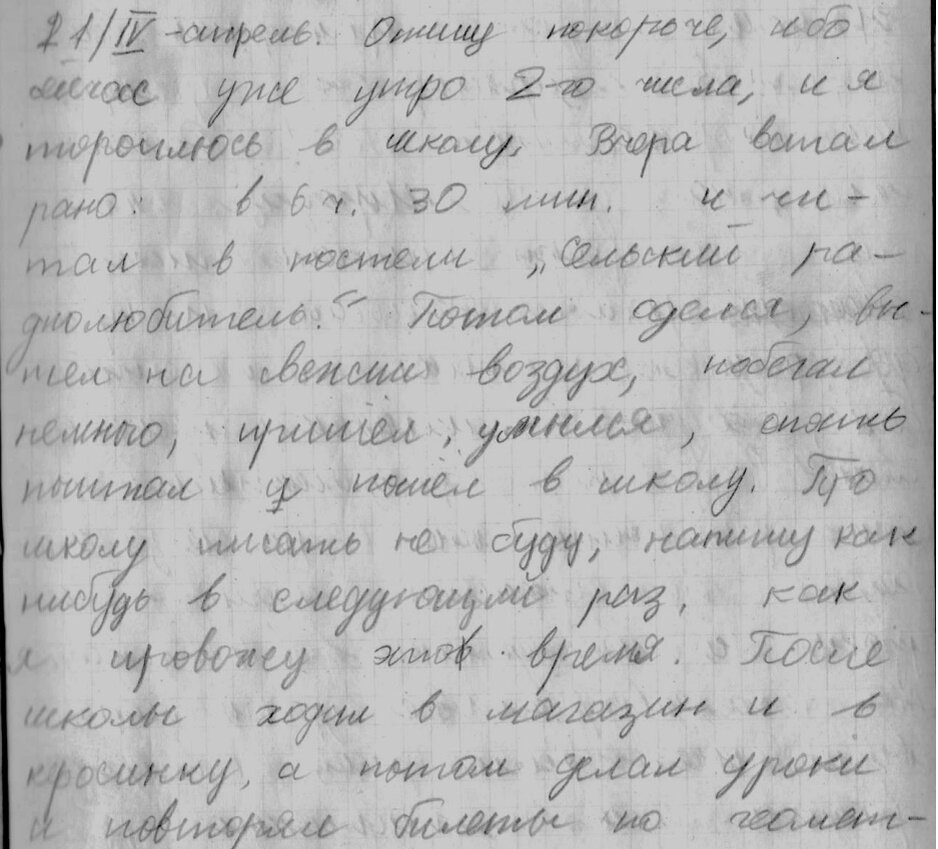 21/IV -апрель. Опишу покороче, ибо
сейчас уже утро 2-го числа, и я
тороплюсь в школу. Вчера встал
рано: в 6 ч. 30 мин. и чи-
тал в постели „Сельский ра-
диолюбитель". Потом оделся, вы-
шел на свежий воздух, побегал
немного, пришёл, умылся, опять
почитал и пошёл в школу. Про
школу писать не буду, напишу как
нибудь в следующий раз, как
я провожу это время. После
школы ходил в магазин и в
керосинку, а потом делал уроки
и повторял билеты по геомет-